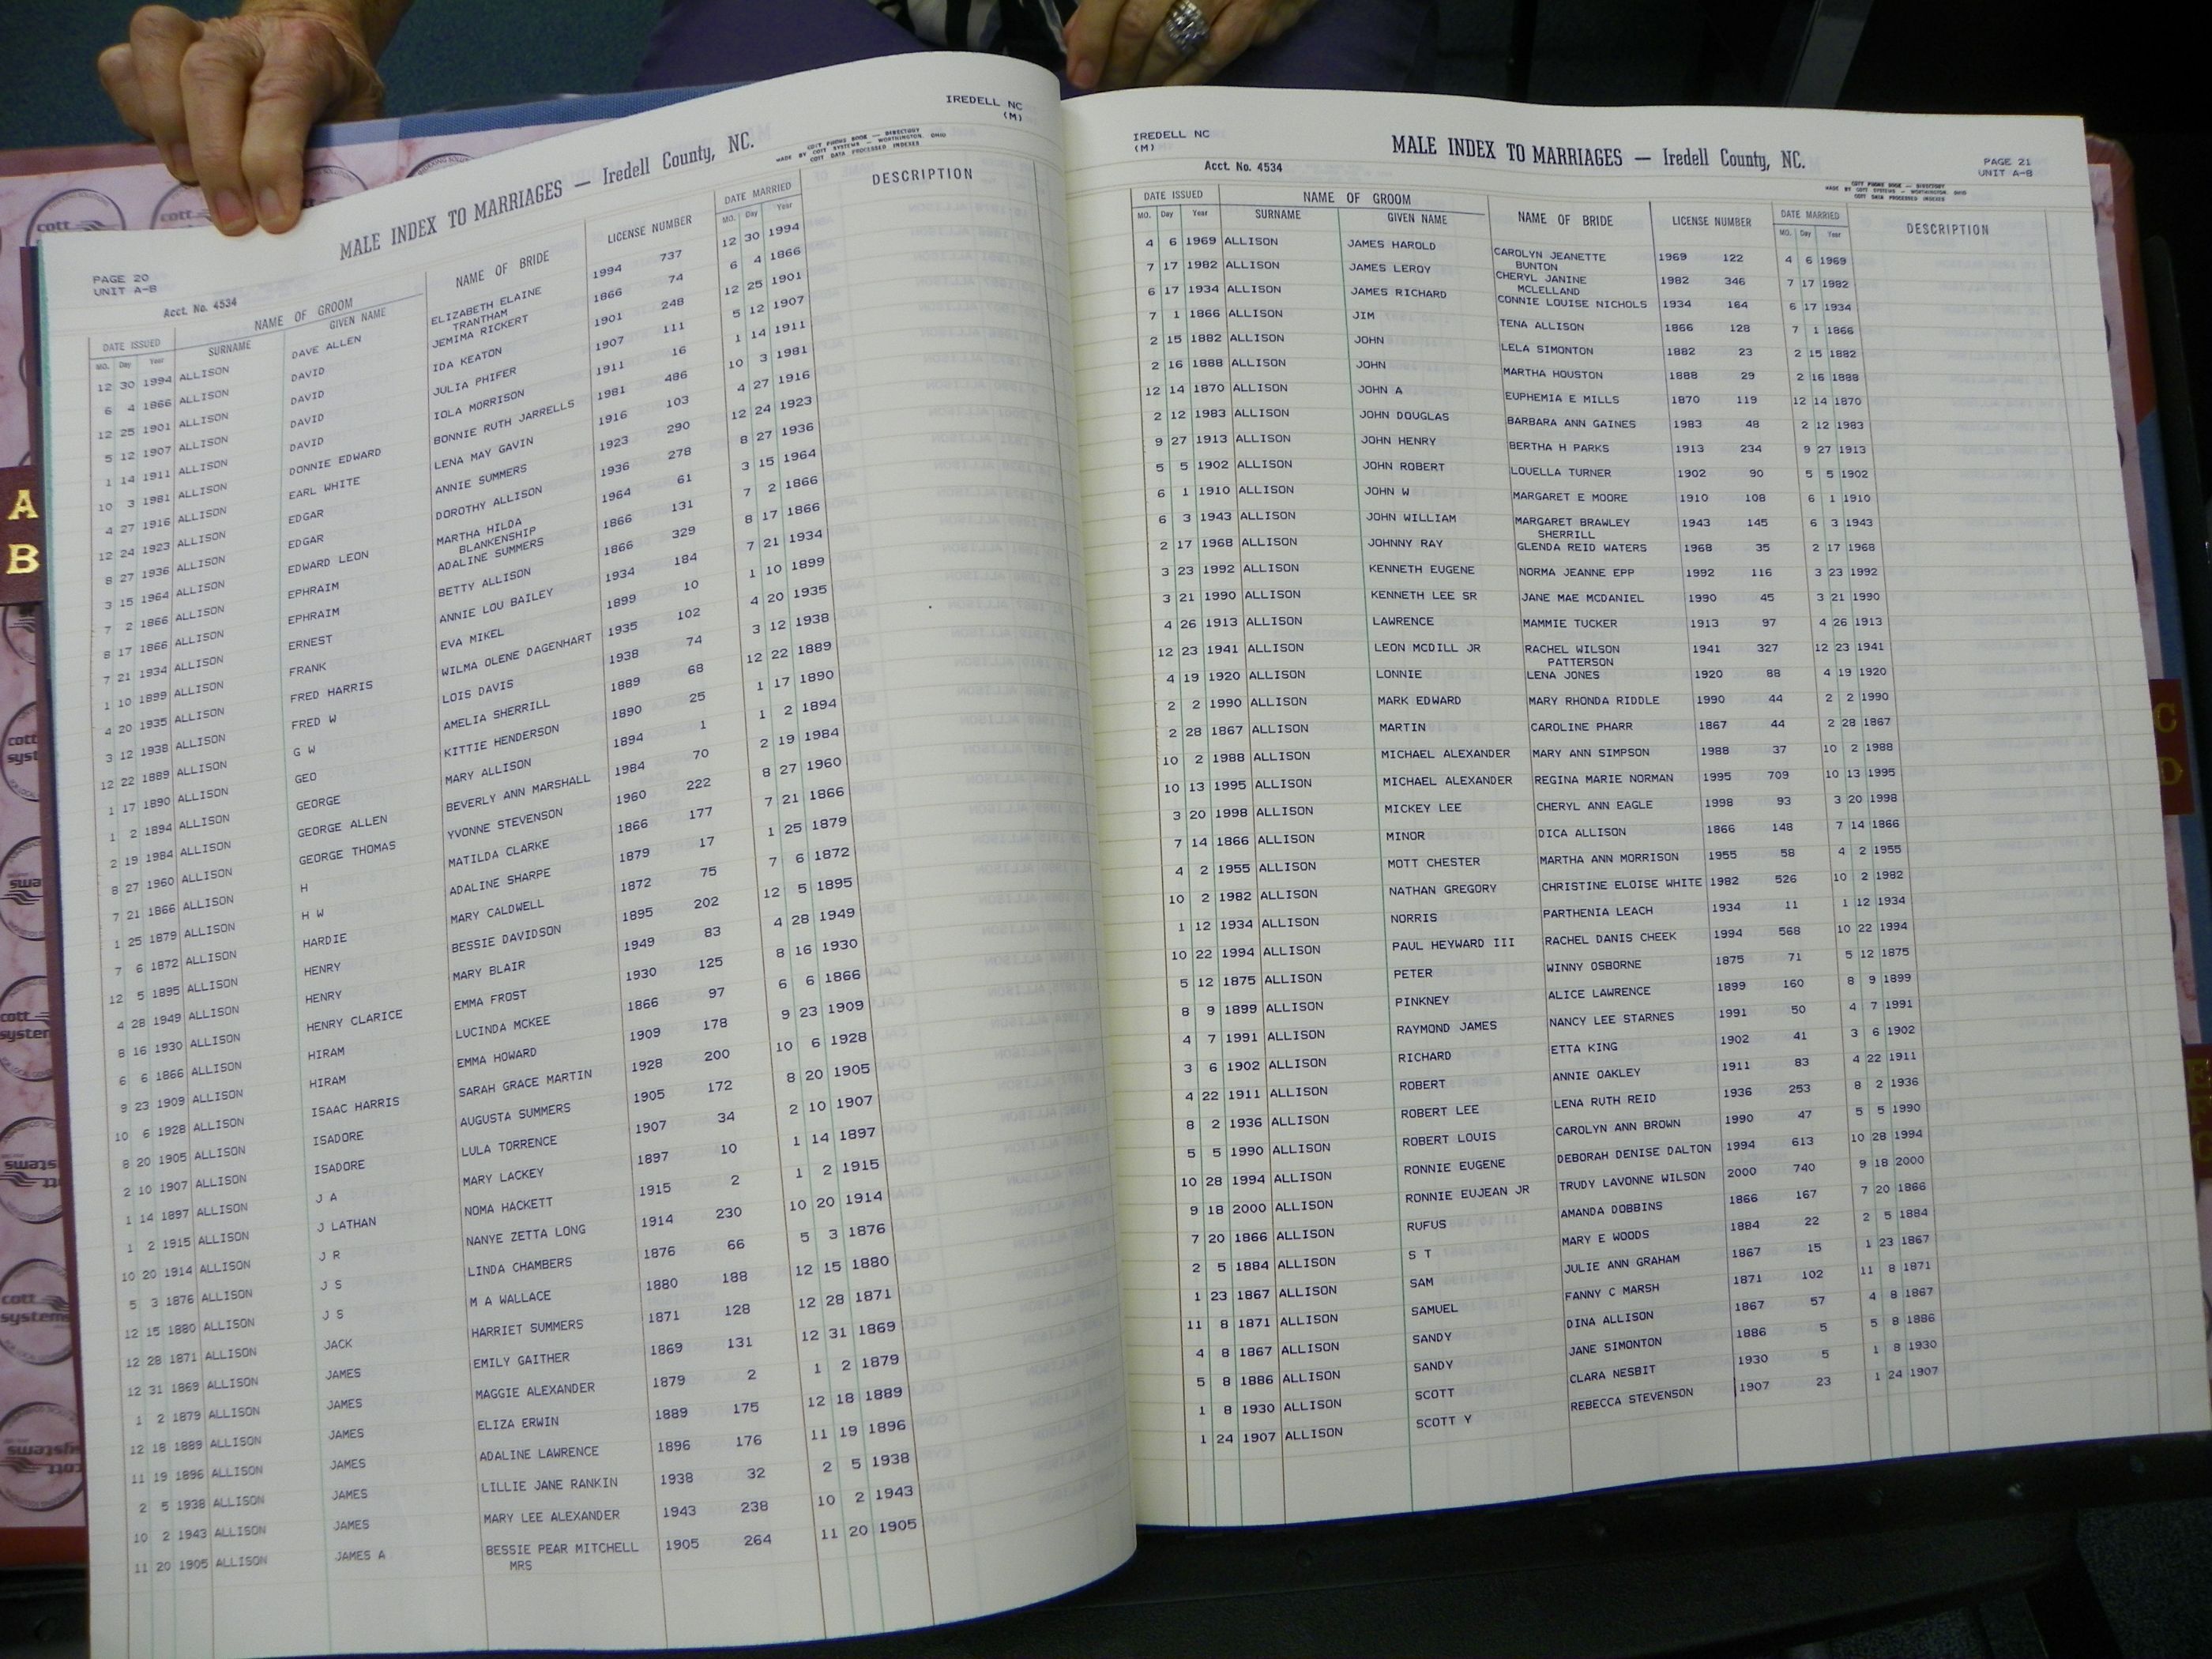 PAGE 20
UNIT A-B
MALE INDEX TO MARRIAGES — Iredell County, NC.
IREDELL NC
(M)
Acct. No. 4534
COTT PHONE BOOK — DIRECTORY
MADE BY COTT SYSTEMS — WORTHINGTON, OHIO
COTT DATA PROCESSED INDEXES
DATE ISSUED NAME OF GROOM NAME OF BRIDE LICENSE NUMBER DATE MARRIED DESCRIPTION
MO. Day Year SURNAME GIVEN NAME MO. Day Year
12 30 1994 ALLISON DAVE ALLEN ELIZABETH ELAINE 1994 737 12 30 1994
TRANTHAM
6 4 1866 ALLISON DAVID JEMIMA RICKERT 1866 74 6 4 1866
12 25 1901 ALLISON DAVID IDA KEATON 1901 248 12 25 1901
5 12 1907 ALLISON DAVID JULIA PHIFER 1907 111 5 12 1907
1 14 1911 ALLISON DAVID IOLA MORRISON 1911 16 1 14 1911
10 3 1981 ALLISON DONNIE EDWARD BONNIE RUTH JARRELLS 1981 486 10 3 1981
4 27 1916 ALLISON EARL WHITE LENA MAY GAVIN 1916 103 4 27 1916
12 24 1923 ALLISON EDGAR ANNIE SUMMERS 1923 290 12 24 1923
8 27 1936 ALLISON EDGAR DOROTHY ALLISON 1936 278 8 27 1936
3 15 1964 ALLISON EDWARD LEON MARTHA HILDA 1964 61 3 15 1964
BLANKENSHIP
7 2 1866 ALLISON EPHRAIM ADALINE SUMMERS 1866 131 7 2 1866
8 17 1866 ALLISON EPHRAIM BETTY ALLISON 1866 329 8 17 1866
7 21 1934 ALLISON ERNEST ANNIE LOU BAILEY 1934 184 7 21 1934
1 10 1899 ALLISON FRANK EVA MIKEL 1899 10 1 10 1899
4 20 1935 ALLISON FRED HARRIS WILMA OLENE DAGENHART 1935 102 4 20 1935
3 12 1938 ALLISON FRED W LOIS DAVIS 1938 74 3 12 1938
12 22 1889 ALLISON G W AMELIA SHERRILL 1889 68 12 22 1889
1 17 1890 ALLISON GEO KITTIE HENDERSON 1890 25 1 17 1890
1 2 1894 ALLISON GEORGE MARY ALLISON 1894 1 1 2 1894
2 19 1984 ALLISON GEORGE ALLEN BEVERLY ANN MARSHALL 1984 70 2 19 1984
8 27 1960 ALLISON GEORGE THOMAS YVONNE STEVENSON 1960 222 8 27 1960
7 21 1866 ALLISON H MATILDA CLARKE 1866 177 7 21 1866
1 25 1879 ALLISON H W ADALINE SHARPE 1879 17 1 25 1879
7 6 1872 ALLISON HARDIE MARY CALDWELL 1872 75 7 6 1872
12 5 1895 ALLISON HENRY BESSIE DAVIDSON 1895 202 12 5 1895
4 28 1949 ALLISON HENRY MARY BLAIR 1949 83 4 28 1949
8 16 1930 ALLISON HENRY CLARICE EMMA FROST 1930 125 8 16 1930
6 6 1866 ALLISON HIRAM LUCINDA MCKEE 1866 97 6 6 1866
9 23 1909 ALLISON HIRAM EMMA HOWARD 1909 178 9 23 1909
10 6 1928 ALLISON ISAAC HARRIS SARAH GRACE MARTIN 1928 200 10 6 1928
8 20 1905 ALLISON ISADORE AUGUSTA SUMMERS 1905 172 8 20 1905
2 10 1907 ALLISON ISADORE LULA TORRENCE 1907 34 2 10 1907
1 14 1897 ALLISON J A MARY LACKEY 1897 10 1 14 1897
1 2 1915 ALLISON J LATHAN NOMA HACKETT 1915 2 1 2 1915
10 20 1914 ALLISON J R NANYE ZETTA LONG 1914 230 10 20 1914
5 3 1876 ALLISON J S LINDA CHAMBERS 1876 66 5 3 1876
12 15 1880 ALLISON J S M A WALLACE 1880 188 12 15 1880
12 28 1871 ALLISON JACK HARRIET SUMMERS 1871 128 12 28 1871
12 31 1869 ALLISON JAMES EMILY GAITHER 1869 131 12 31 1869
1 2 1879 ALLISON JAMES MAGGIE ALEXANDER 1879 2 1 2 1879
12 18 1889 ALLISON JAMES ELIZA ERWIN 1889 175 12 18 1889
11 19 1896 ALLISON JAMES ADALINE LAWRENCE 1896 176 11 19 1896
2 5 1938 ALLISON JAMES LILLIE JANE RANKIN 1938 32 2 5 1938
10 2 1943 ALLISON JAMES MARY LEE ALEXANDER 1943 238 10 2 1943
11 20 1905 ALLISON JAMES A BESSIE PEAR MITCHELL 1905 264 11 20 1905
MRS
IREDELL NC
(M)
MALE INDEX TO MARRIAGES — Iredell County, NC.
PAGE 21
UNIT A-B
Acct. No. 4534
COTT PHONE BOOK — DIRECTORY
MADE BY COTT SYSTEMS — WORTHINGTON, OHIO
COTT DATA PROCESSED INDEXES
DATE ISSUED NAME OF GROOM NAME OF BRIDE LICENSE NUMBER DATE MARRIED DESCRIPTION
MO. Day Year SURNAME GIVEN NAME MO. Day Year
4 6 1969 ALLISON JAMES HAROLD CAROLYN JEANETTE 1969 122 4 6 1969
BUNTON
7 17 1982 ALLISON JAMES LEROY CHERYL JANINE 1982 346 7 17 1982
MCLELLAND
6 17 1934 ALLISON JAMES RICHARD CONNIE LOUISE NICHOLS 1934 164 6 17 1934
7 1 1866 ALLISON JIM TENA ALLISON 1866 128 7 1 1866
2 15 1882 ALLISON JOHN LELA SIMONTON 1882 23 2 15 1882
2 16 1888 ALLISON JOHN MARTHA HOUSTON 1888 29 2 16 1888
12 14 1870 ALLISON JOHN A EUPHEMIA E MILLS 1870 119 12 14 1870
2 12 1983 ALLISON JOHN DOUGLAS BARBARA ANN GAINES 1983 48 2 12 1983
9 27 1913 ALLISON JOHN HENRY BERTHA H PARKS 1913 234 9 27 1913
5 5 1902 ALLISON JOHN ROBERT LOUELLA TURNER 1902 90 5 5 1902
6 1 1910 ALLISON JOHN W MARGARET E MOORE 1910 108 6 1 1910
6 3 1943 ALLISON JOHN WILLIAM MARGARET BRAWLEY 1943 145 6 3 1943
SHERRILL
2 17 1968 ALLISON JOHNNY RAY GLENDA REID WATERS 1968 35 2 17 1968
3 23 1992 ALLISON KENNETH EUGENE NORMA JEANNE EPP 1992 116 3 23 1992
3 21 1990 ALLISON KENNETH LEE SR JANE MAE MCDANIEL 1990 45 3 21 1990
4 26 1913 ALLISON LAWRENCE MAMMIE TUCKER 1913 97 4 26 1913
12 23 1941 ALLISON LEON MCDILL JR RACHEL WILSON 1941 327 12 23 1941
PATTERSON
4 19 1920 ALLISON LONNIE LENA JONES 1920 88 4 19 1920
2 2 1990 ALLISON MARK EDWARD MARY RHONDA RIDDLE 1990 44 2 2 1990
2 28 1867 ALLISON MARTIN CAROLINE PHARR 1867 44 2 28 1867
10 2 1988 ALLISON MICHAEL ALEXANDER MARY ANN SIMPSON 1988 37 10 2 1988
10 13 1995 ALLISON MICHAEL ALEXANDER REGINA MARIE NORMAN 1995 709 10 13 1995
3 20 1998 ALLISON MICKEY LEE CHERYL ANN EAGLE 1998 93 3 20 1998
7 14 1866 ALLISON MINOR DICA ALLISON 1866 148 7 14 1866
4 2 1955 ALLISON MOTT CHESTER MARTHA ANN MORRISON 1955 58 4 2 1955
10 2 1982 ALLISON NATHAN GREGORY CHRISTINE ELOISE WHITE 1982 526 10 2 1982
1 12 1934 ALLISON NORRIS PARTHENIA LEACH 1934 11 1 12 1934
10 22 1994 ALLISON PAUL HEYWARD III RACHEL DANIS CHEEK 1994 568 10 22 1994
5 12 1875 ALLISON PETER WINNY OSBORNE 1875 71 5 12 1875
8 9 1899 ALLISON PINKNEY ALICE LAWRENCE 1899 160 8 9 1899
4 7 1991 ALLISON RAYMOND JAMES NANCY LEE STARNES 1991 50 4 7 1991
3 6 1902 ALLISON RICHARD ETTA KING 1902 41 3 6 1902
4 22 1911 ALLISON ROBERT ANNIE OAKLEY 1911 83 4 22 1911
8 2 1936 ALLISON ROBERT LEE LENA RUTH REID 1936 253 8 2 1936
5 5 1990 ALLISON ROBERT LOUIS CAROLYN ANN BROWN 1990 47 5 5 1990
10 28 1994 ALLISON RONNIE EUGENE DEBORAH DENISE DALTON 1994 613 10 28 1994
9 18 2000 ALLISON RONNIE EUJEAN JR TRUDY LAVONNE WILSON 2000 740 9 18 2000
7 20 1866 ALLISON RUFUS AMANDA DOBBINS 1866 167 7 20 1866
2 5 1884 ALLISON S T MARY E WOODS 1884 22 2 5 1884
1 23 1867 ALLISON SAM JULIE ANN GRAHAM 1867 15 1 23 1867
11 8 1871 ALLISON SAMUEL FANNY C MARSH 1871 102 11 8 1871
4 8 1867 ALLISON SANDY DINA ALLISON 1867 57 4 8 1867
5 8 1886 ALLISON SANDY JANE SIMONTON 1886 5 5 8 1886
1 8 1930 ALLISON SCOTT CLARA NESBIT 1930 5 1 8 1930
1 24 1907 ALLISON SCOTT Y REBECCA STEVENSON 1907 23 1 24 1907
A
B
C
D
cott
cott
systems
cott
systems